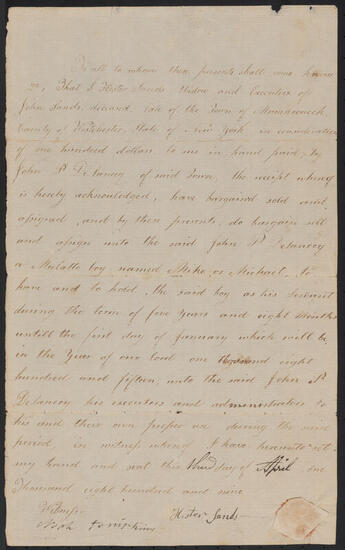 To all to whom these presents shall come know
ye, That I Hester Sands Widow and Executrix of
John Sands, deceased, late of the Town of Mamaroneck
County of Westchester, State of New York in consideration
of one hundred dollars to me in hand paid, by
John P DeLancey of said Town, the receipt whereof
is hereby acknowledged, have bargained sold and
assigned, and by these presents, do bargain sell
and assign unto the said John P Delancey
a Mulatto boy named Mike, or Michael, to
have and to hold, the said boy as his Servant
during the term of five Years and eight Months
untill the first day of January which will be
in the Year of our Lord one thousand eight
hundred and fifteen, unto the said John P
Delancey his executors and administrators to
his and their own proper use during the said
period in witness whereof I have hereunto set
my hand and seal this third day of April one
Thousand eight hundred and nine
Witness
Hester Sands